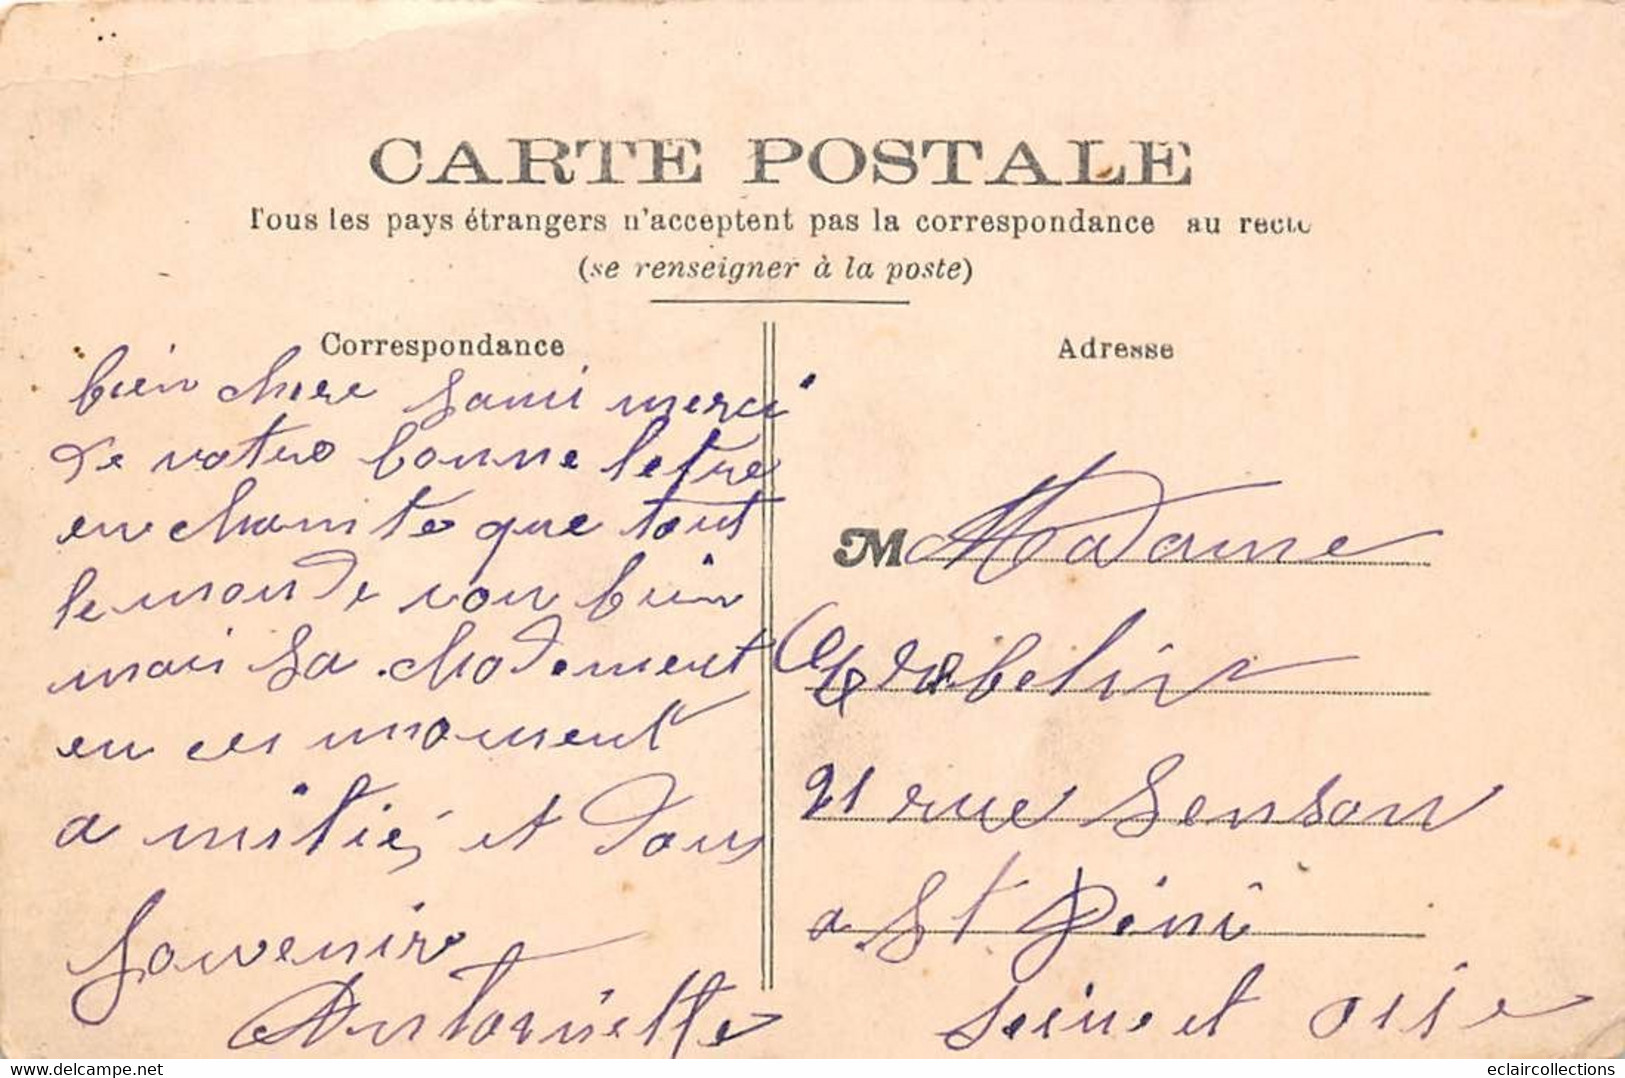 CARTE POSTALE
Tous les pays étrangers n'acceptent pas la correspondance au recto
(se renseigner à la poste)
Correspondance
bien chere Sami merci
de votre bonne letre
en chanite que tout
le monde von bien
mais sa chadement
en ces moment
a mitiés et dous
Souvenir
Antoinette
Adresse
M Madame
21 rue Senson
a St Deni
Seine et oise
delcampe.net
eclaircollections